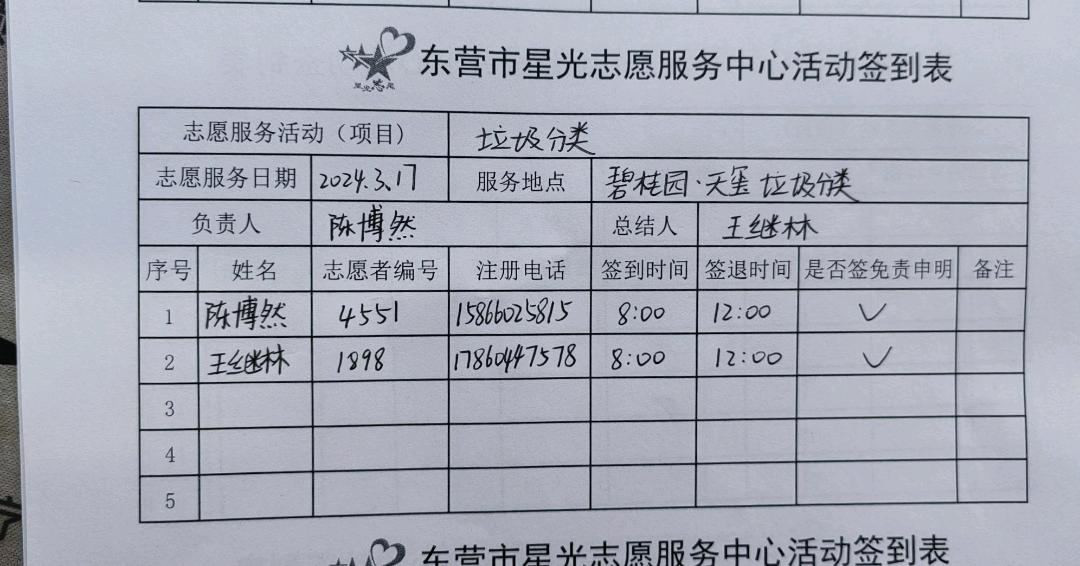 东营市星光志愿服务中心活动签到表
志愿服务活动（项目） 垃圾分类
志愿服务日期 2024.3.17 服务地点 碧桂园·天玺 垃圾分类
负责人 陈博然 总结人 王继林
序号 姓名 志愿者编号 注册电话 签到时间 签退时间 是否签免责申明 备注
1 陈博然 4551 15866025815 8:00 12:00 ✓
2 王继林 1898 17860447578 8:00 12:00 ✓
3
4
5
东营市星光志愿服务中心活动签到表